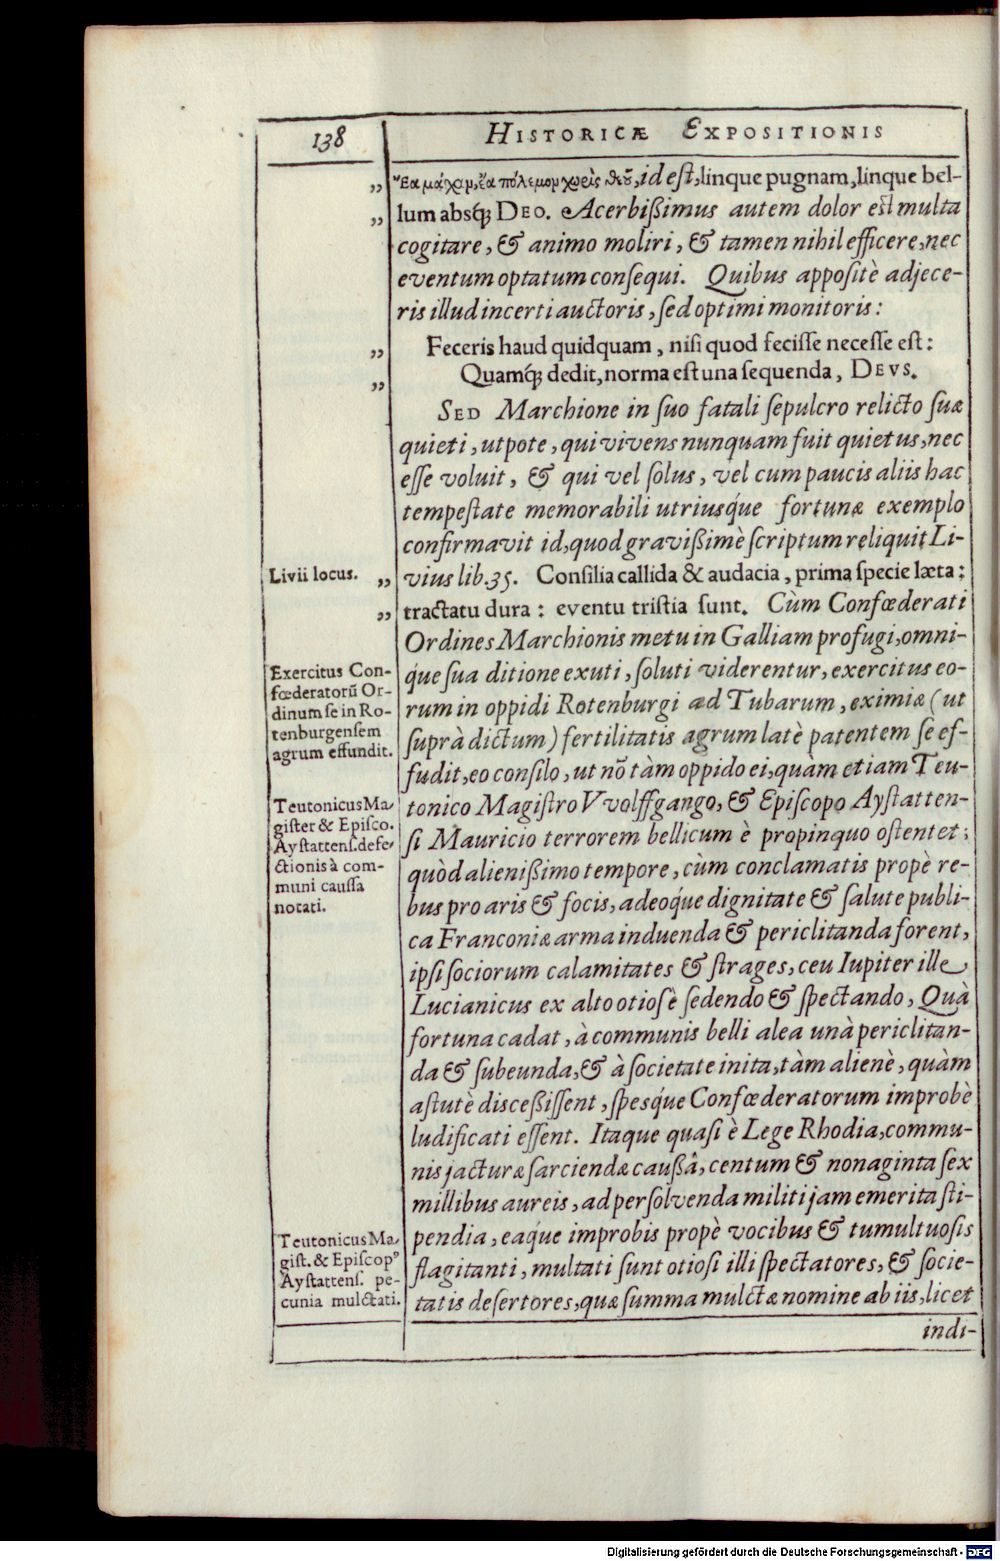 138
HISTORICÆ EXPOSITIONIS
„ Ἔα μάχην, ἔα πόλεμον χωρὶς θεοῦ, id est, linque pugnam, linque bel-
„ lum absq́; DEO. Acerbißimus autem dolor est multa
cogitare, & animo moliri, & tamen nihil efficere, nec
eventum optatum consequi. Quibus appositè adjece-
ris illud incerti auctoris, sed optimi monitoris:
„ Feceris haud quidquam, nisi quod fecisse necesse est:
„ Quamq́; dedit, norma est una sequenda, DEVS.
SED Marchione in suo fatali sepulcro relicto suæ
quieti, utpote, qui vivens nunquam fuit quietus, nec
esse voluit, & qui vel solus, vel cum paucis aliis hac
tempestate memorabili utriusq́ue fortunæ exemplo
confirmavit id, quod gravißimè scriptum reliquit Li-
Livii locus.
„ vius lib. 35. Consilia callida & audacia, prima specie læta:
„ tractatu dura: eventu tristia sunt. Cùm Confœderati
Ordines Marchionis metu in Galliam profugi, omni-
q́ue sua ditione exuti, soluti viderentur, exercitus eo-
rum in oppidi Rotenburgi ad Tubarum, eximiæ (ut
suprà dictum) fertilitatis agrum latè patentem se ef-
fudit, eo consilo, ut nõ tàm oppido ei, quàm etiam Teu-
Exercitus Con-
fœderatorũ Or-
dinum se in Ro-
tenburgensem
agrum effundit.
tonico Magistro Vvolffgango, & Episcopo Aystatten-
si Mauricio terrorem bellicum è propinquo ostentet:
quòd alienißimo tempore, cùm conclamatis propè re-
bus pro aris & focis, adeoq́ue dignitate & salute publi-
ca Franconiæ arma induenda & periclitanda forent,
Teutonicus Ma-
gister & Episco.
Aystattens. defe-
ctionis à com-
muni caussa
notati.
ipsi sociorum calamitates & strages, ceu Iupiter ille
Lucianicus ex alto otiosè sedendo & spectando, Quà
fortuna cadat, à communis belli alea unà periclitan-
da & subeunda, & à societate inita, tàm alienè, quàm
astutè disceßissent, spesq́ue Confœderatorum improbè
ludificati essent. Itaque quasi è Lege Rhodia, commu-
nis jacturæ sarciendæ caußâ, centum & nonaginta sex
millibus aureis, ad persolvenda militi jam emerita sti-
pendia, eaq́ue improbis propè vocibus & tumultuosis
flagitanti, multati sunt otiosi illi spectatores, & socie-
tatis desertores, quæ summa mulctæ nomine ab iis, licet
Teutonicus Ma-
gist. & Episcopꝰ
Aystattens. pe-
cunia mulctati.
indi-
Digitalisierung gefördert durch die Deutsche Forschungsgemeinschaft - DFG